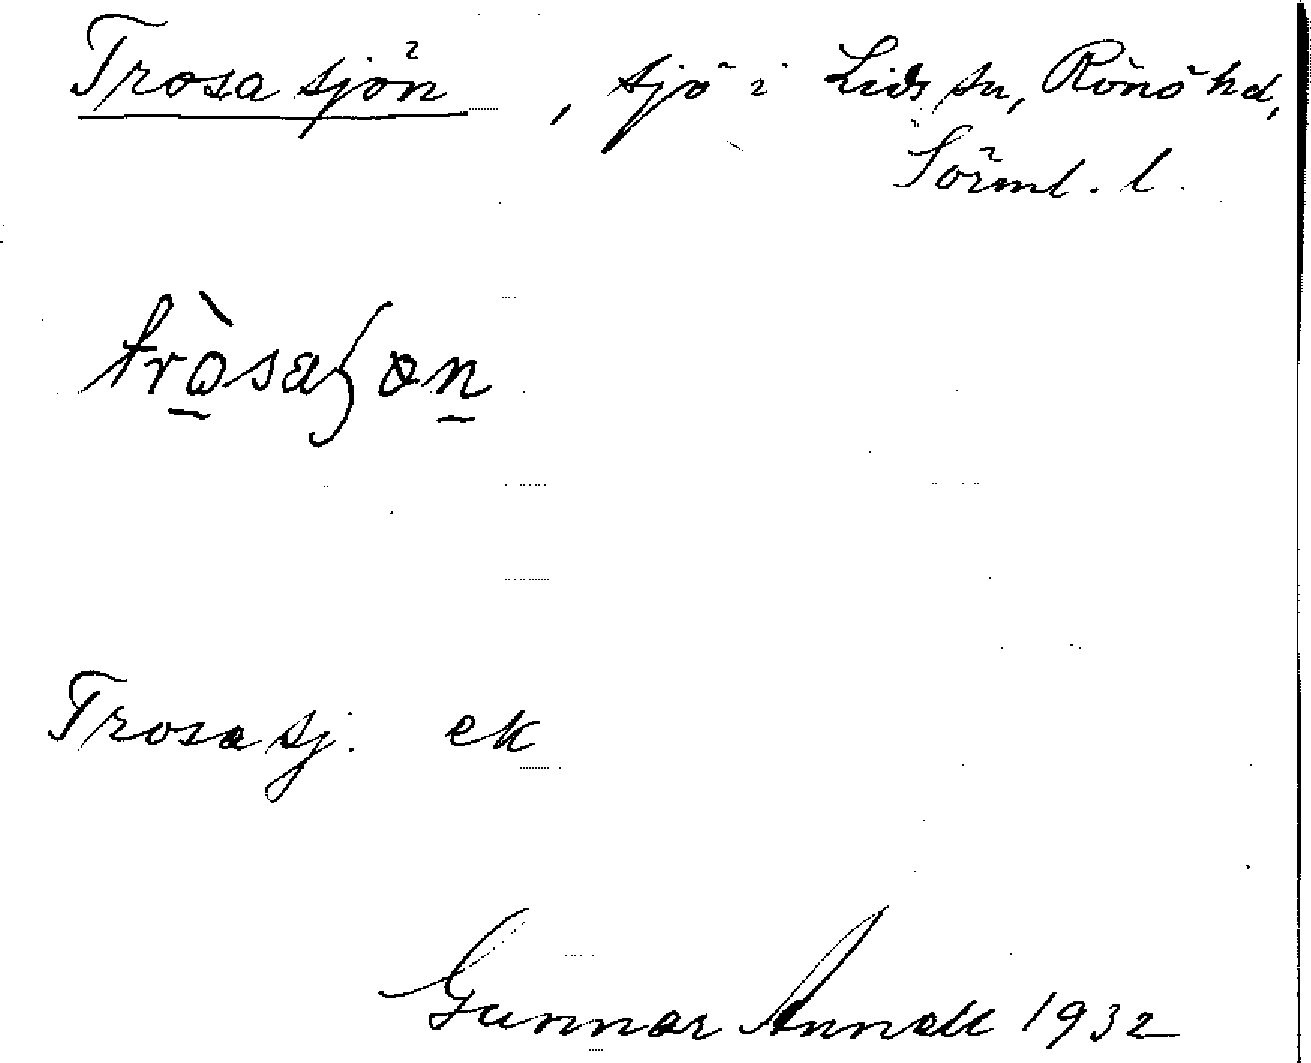 Trosasjön, sjö i Lids sn, Rönö hd,
Sörml. l.
tròsaʃon
Trosasj. ek
Gunnar Annell 1932